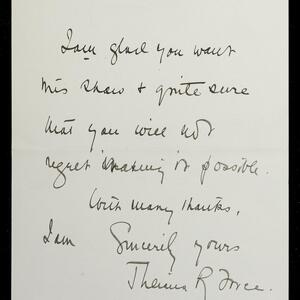 I am glad you want
this show & quite sure
that you will not
regret making it possible.
With many thanks,
I am Sincerely yours
R Force.